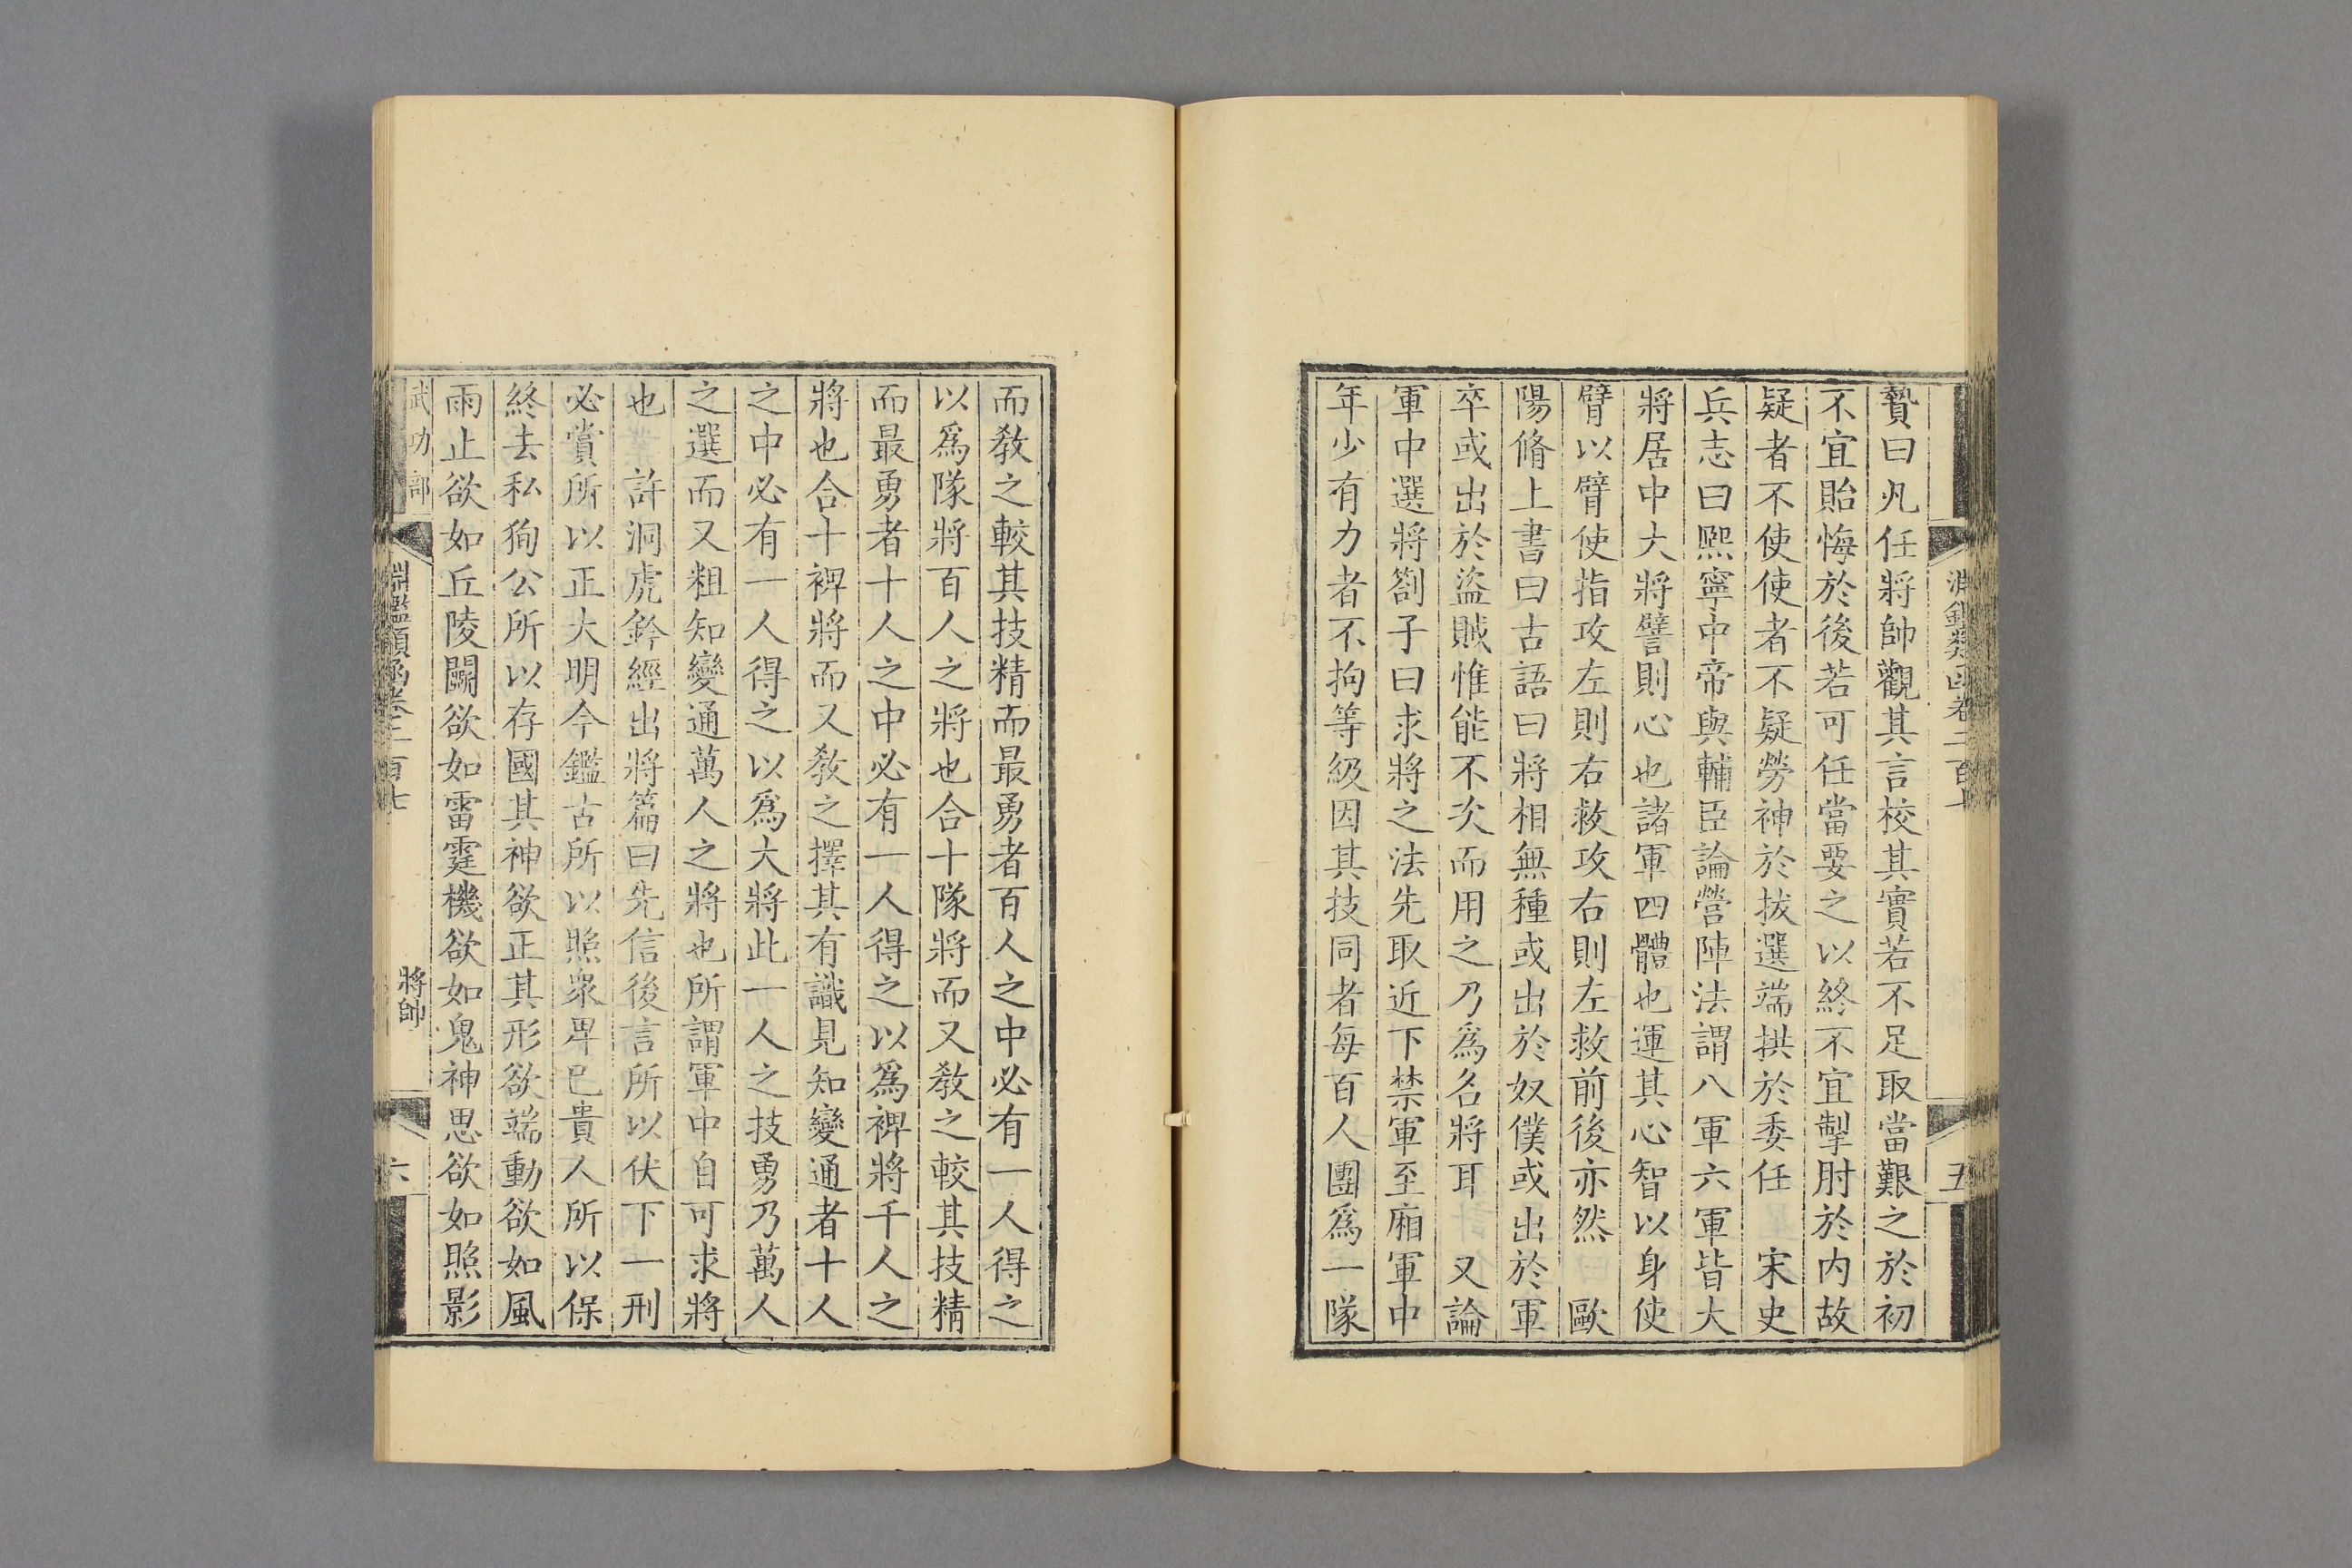 贄曰凡任將帥觀其言校其實若不足取當艱之於初
不宜貽悔於後若可任當要之以終不宜掣肘於内故
疑者不使使者不疑勞神於拔選端拱於委任 宋史
兵志曰熙寧中帝與輔臣論營陣法謂八軍六軍皆大
將居中大將譬則心也諸軍四體也運其心智以身使
臂以臂使指攻左則右救攻右則左救前後亦然 歐
陽脩上書曰古語曰將相無種或出於奴僕或出於軍
卒或出於盜賊惟能不次而用之乃爲名將耳 又論
軍中選將劄子曰求將之法先取近下禁軍至廂軍中
年少有力者不拘等級因其技同者每百人團爲一隊
五
而敎之較其技精而最勇者百人之中必有一人得之
以爲隊將百人之將也合十隊將而又敎之較其技精
而最勇者十人之中必有一人得之以爲裨將千人之
將也合十裨將而又敎之擇其有識見知變通者十人
之中必有一人得之以爲大將此一人之技勇乃萬人
之選而又粗知變通萬人之將也所謂軍中自可求將
也 許洞虎鈐經出將篇曰先信後言所以伏下一刑
必賞所以正大明今鑑古所以照衆卑已貴人所以保
終去私狥公所以存國其神欲正其形欲端動欲如風
雨止欲如丘陵鬭欲如雷霆機欲如鬼神思欲如照影
武功部 淵鑑類函卷二百七 將帥 六